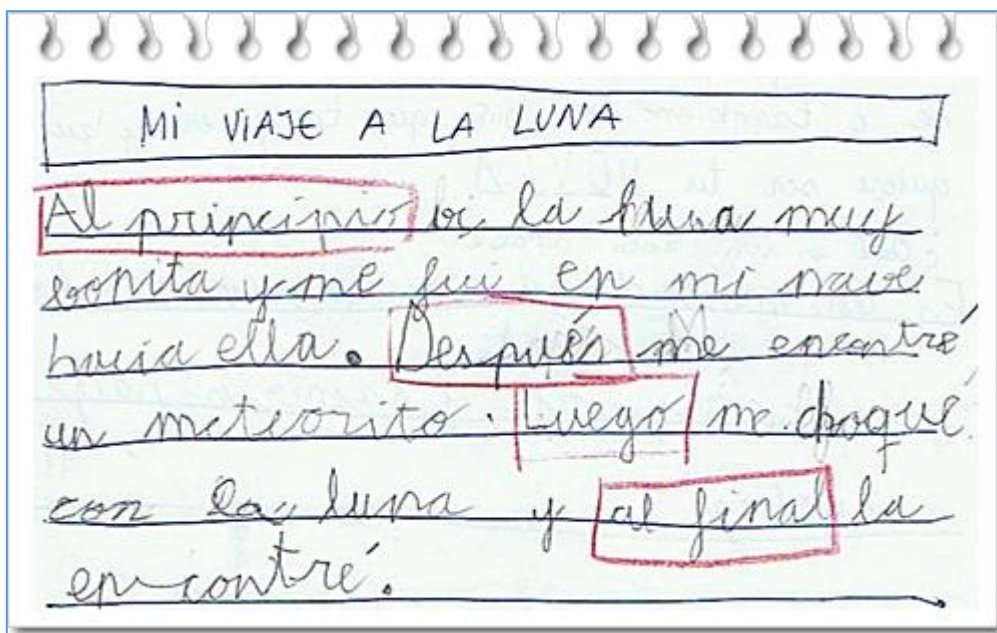 MI VIAJE A LA LUNA
Al principio vi la luna muy
bonita y me fui en mi nave
hacia ella. Después me encontré
un meteorito. Luego me choqué
con la luna y al final la
encontré.